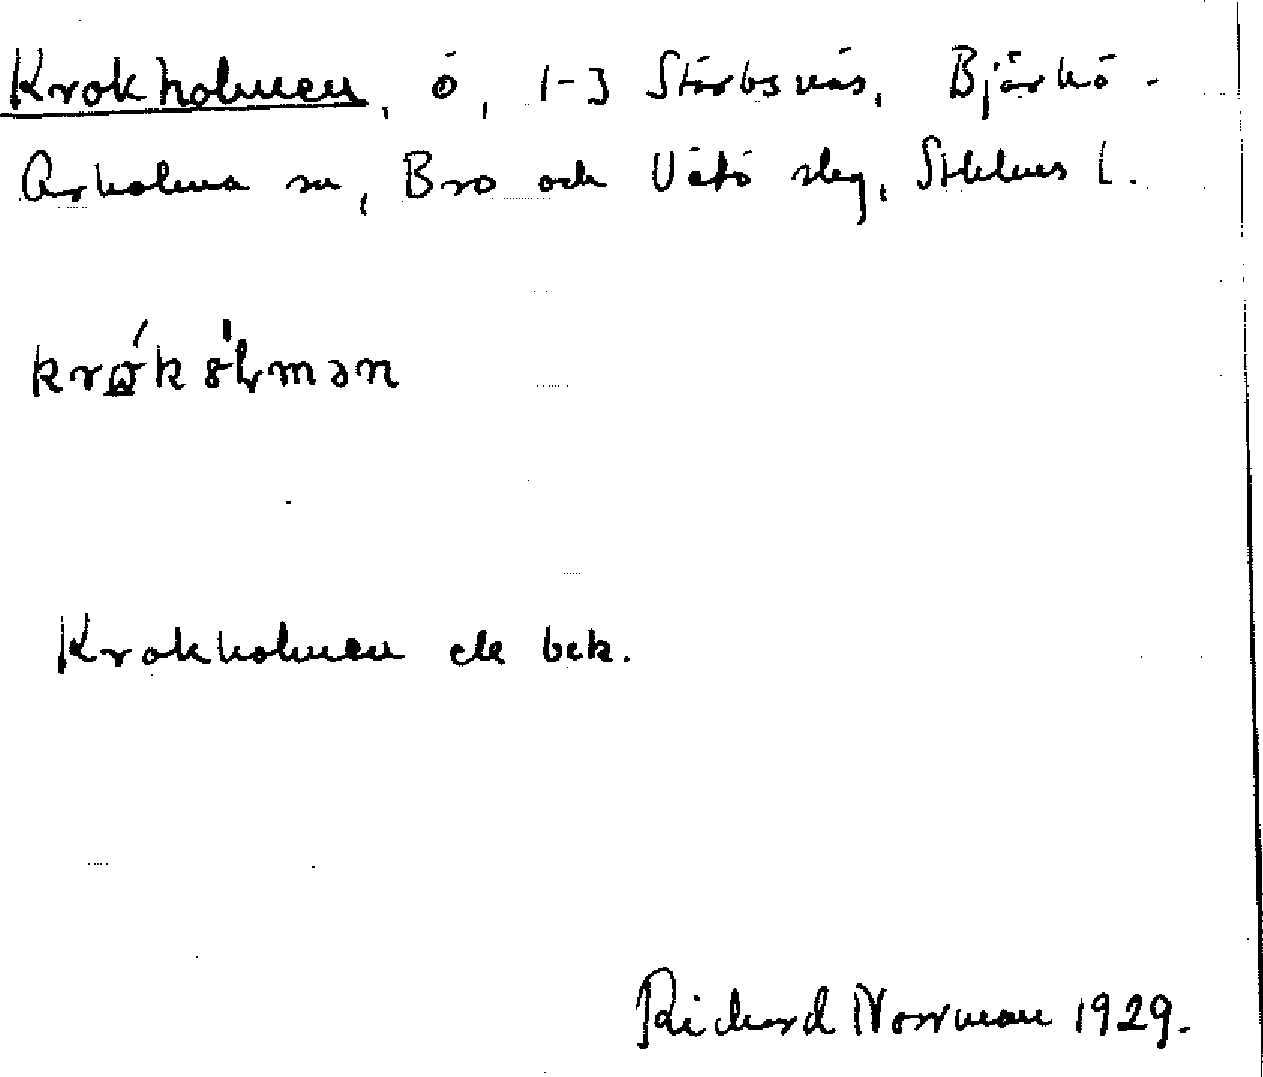 Krokholmen, ö, 1-3 Störbsnäs, Björkö-
Arholma sn, Bro och Vätö slg, Sthlms l.
Krokholmen ek bek.
Richard Norrman 1929.